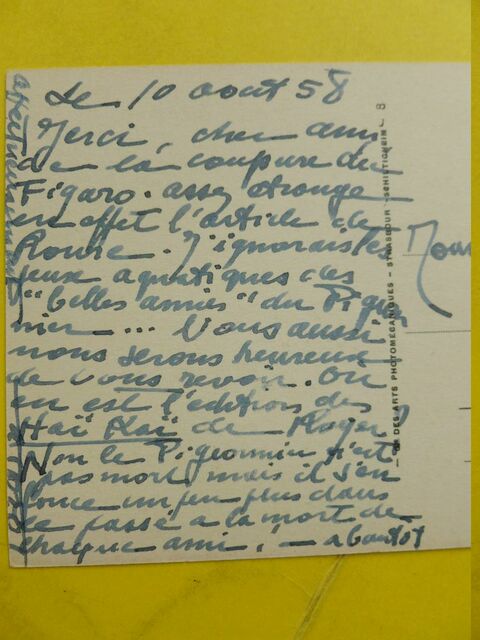 Le 10 août 58
Merci, cher ami
de la coupure du
Figaro. assez étrange
en effet l'article de
J'ignorais les
jeux aquatiques des
"belles amies" du Pigeon-
nier ... Nous aussi
nous serons heureux
de vous revoir. Où
en est l'édition des
Haï Kaï de Roger?
Non le Pigeonnier n'est
pas mort, mais il s'en
fonce un peu plus dans
le passé à la mort de
chaque ami. — à bientôt
affectueusement
Mon
DES ARTS PHOTOMÉCANIQUES - STRASBOURG - SCHILTIGHEIM
8